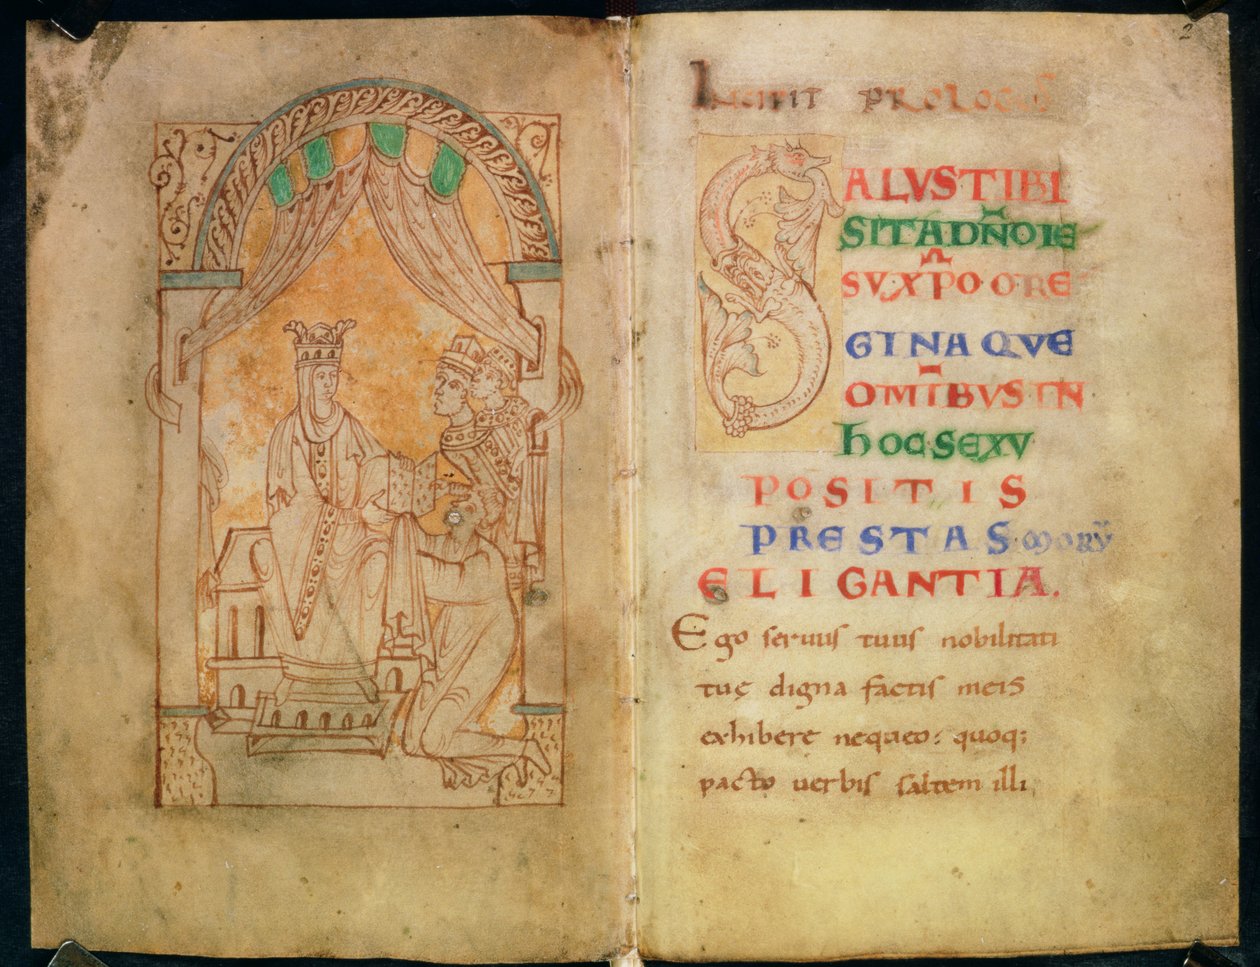 2
INCIPIT PROLOGUS
SALVS·TIBI
SIT A DÑO IE
SV·XPO O RE
GINA QVE
OMĪBVS IN
hOC·SEXV
POSITIS
PRESTAS morū
ELIGANTIA.
Ego seruus tuus nobilitati
tuę digna factis meis
exhibere nequeo: quoq;
pacto uerbis saltem illi,